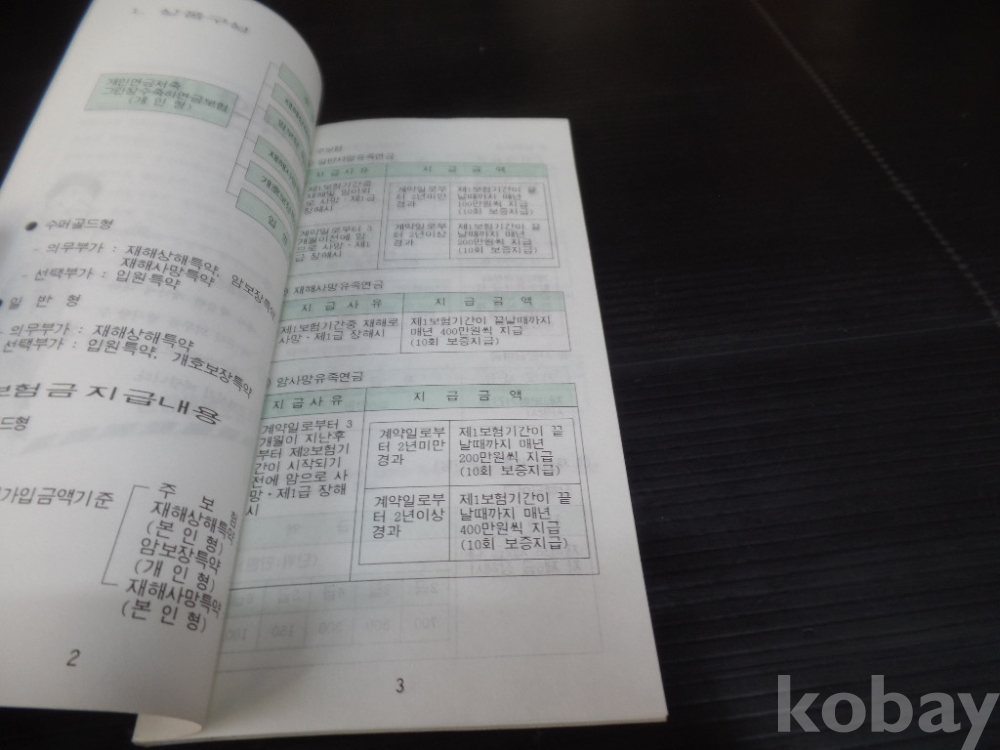 1. 상품구성
개인연금저축
그린장수축하연금보험
(개 인 형)
● 수퍼골드형
- 의무부가 : 재해상해특약, 암보장특약
재해사망특약
- 선택부가 : 입원특약
● 일 반 형
- 의무부가 : 재해상해특약
선택부가 : 입원특약, 개호보장특약
보험금지급내용
드형
가입금액기준
주 보 험
재해상해특약
(본 인 형)
암보장특약
(개 인 형)
재해사망특약
(본 인 형)
2
주보험
일반사망유족연금
지급사유
지 급 금 액
제1보험기간중
재해및 암이외
로 사망·제1급
장해시
계약일로부
터 2년미만
경과
제1보험기간이 끝
날때까지 매년
100만원씩 지급
(10회 보증지급)
계약일로부터 3
개월이전에 암
으로 사망·제1
급 장해시
계약일로부
터 2년이상
경과
제1보험기간이 끝
날때까지 매년
200만원씩 지급
(10회 보증지급)
재해사망유족연금
지 급 사 유
지 급 금 액
제1보험기간중 재해로
사망·제1급 장해시
제1보험기간이 끝날때까지
매년 400만원씩 지급
(10회 보증지급)
암사망유족연금
지 급 사 유
지 급 금 액
계약일로부터 3
개월이 지난후
부터 제2보험기
간이 시작되기
전에 암으로 사
망·제1급 장해
시
계약일로부
터 2년미만
경과
제1보험기간이 끝
날때까지 매년
200만원씩 지급
(10회 보증지급)
계약일로부
터 2년이상
경과
제1보험기간이 끝
날때까지 매년
400만원씩 지급
(10회 보증지급)
3
kobay